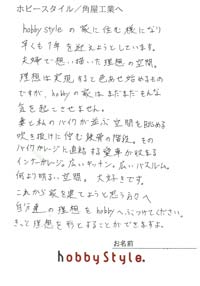 ホビースタイル/角屋工業へ
hobby styleの家に住む様になり
早くも7年を迎えようとしています。
夫婦で思い描いた理想の空間。
理想は実現すると色あせ始めるもの
ですが、hobbyの家はまだまだそんな
気を起こさせません。
妻と私のバイクが並ぶ空間を眺める
吹き抜けに佇む鉄骨の階段。その
バイクガレージに直結する愛車が収まる
インナーガレージ。広いキッチン。広いバスルーム。
何より明るい空間。大好きです。
これから家を建てようと思う方々へ
自分達の理想をhobbyへぶつけてください。
きっと理想を形とすることができますよ。
お名前
hobbyStyle.